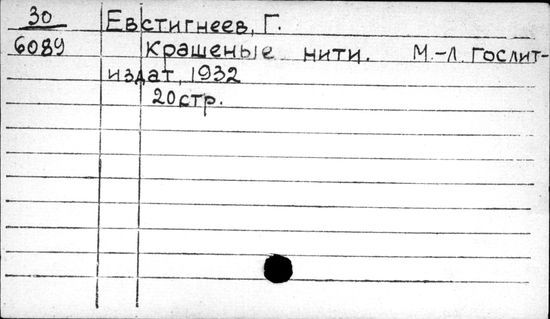 30 Евстигнеев, Г.
6089 Крашеные нити. М.-Л. Гослит-
издат, 1932
20 стр.